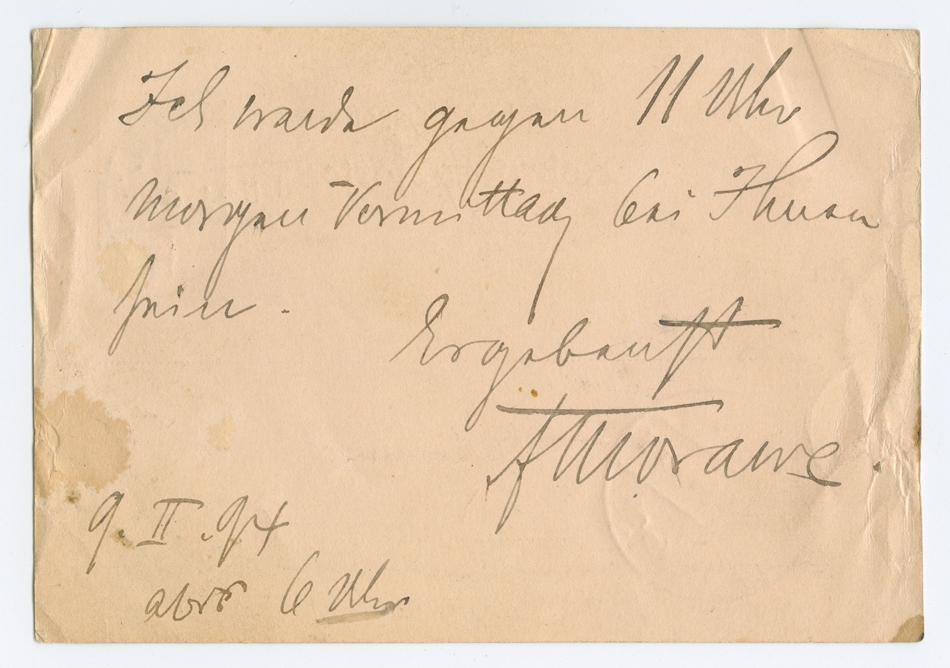 Ich werde gegen 11 Uhr
morgen Vormittag bei Ihnen
sein.
Ergebenst
Morawe.
9. II. 94
6 Uhr